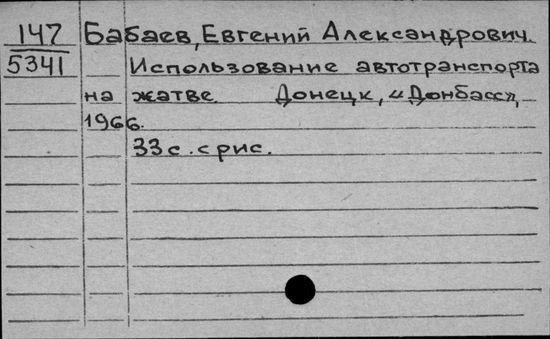 147 Бабаев, Евгений Александрович.
5341 Использование автотранспорта
на жатве. Донецк, «Донбасс»,
1966.
33 с. с рис.